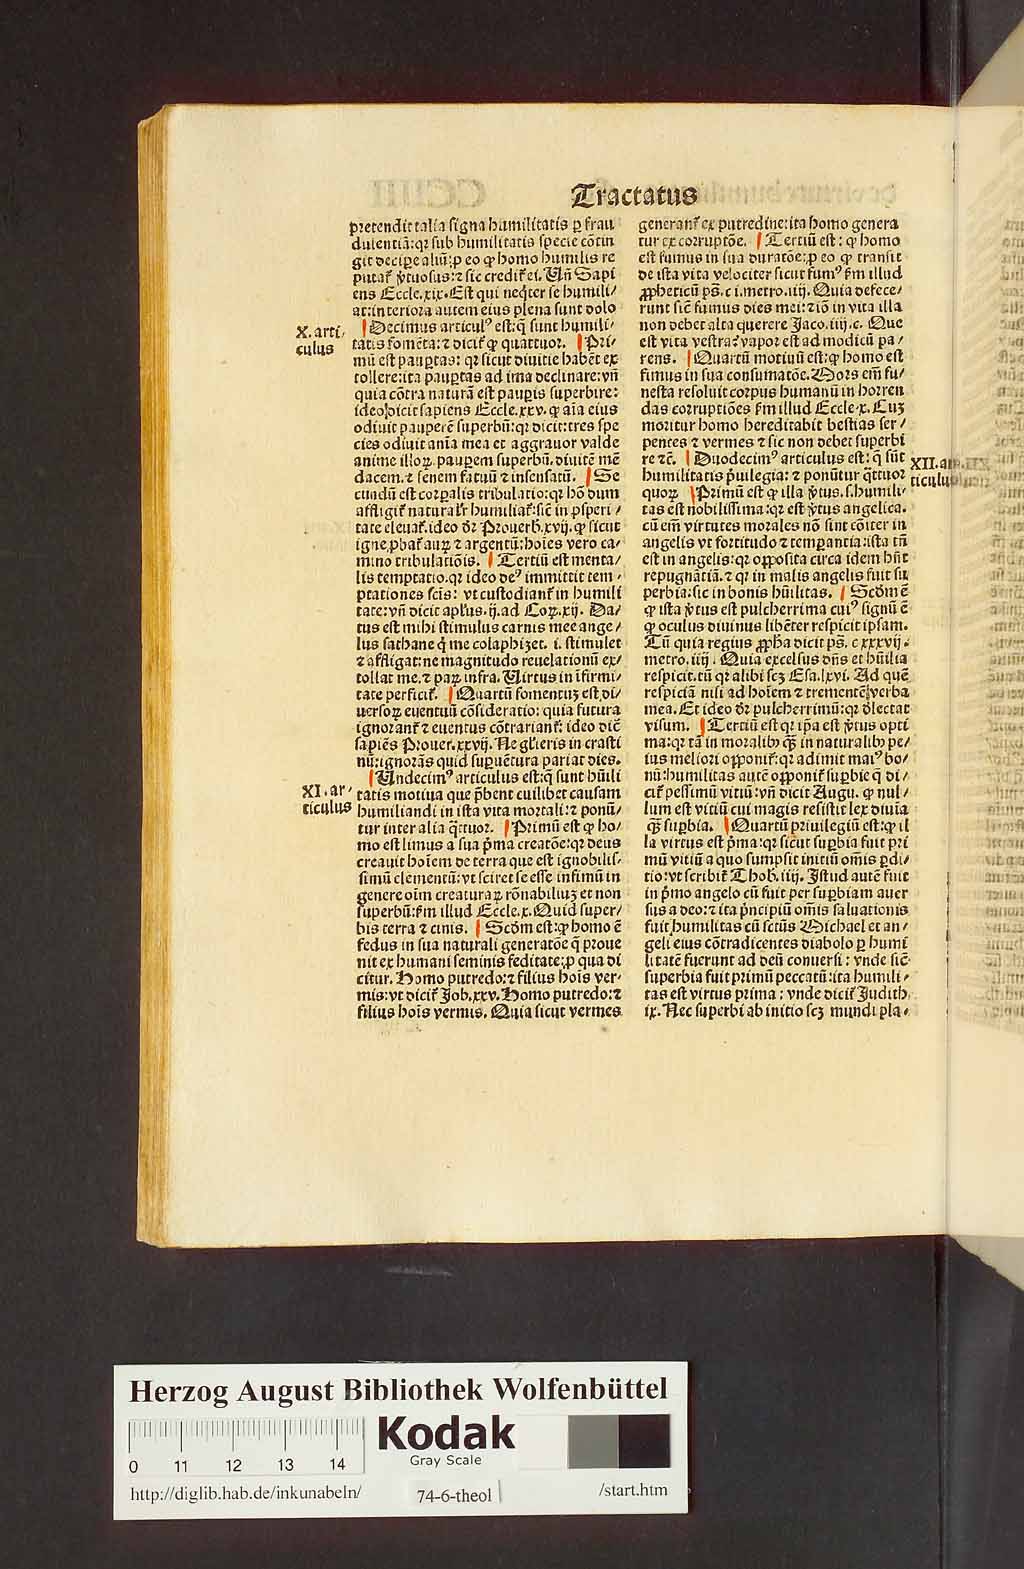 Tractatus
pretendit talia signa humilitatis ꝑ frau
dulentiā: qꝛ sub humilitatis specie cōtin
git decipe aliū: ꝓ eo ꝙ homo humilis re
putat᷑ v̓tuosus: ⁊ sic credit᷑ ei. Vn̄ Sapi
ens Eccle. xix. Est qui neq̄ter se humili/
at: interiora autem eius plena sunt dolo
Decimus articulꝰ est: q̄ sunt humili/
tatis fomēta: ⁊ dicit᷑ ꝙ quattuor. Pri/
mū est pauꝑtas: qꝛ sicut diuitie habēt ex
tollere: ita pauꝑtas ad ima declinare: vn̄
quia cōtra naturā est pauꝑis superbire:
ideo dicit sapiens Eccle. xxv. ꝙ aīa eius
odiuit pauperē superbū: qꝛ dicit: tres spe
cies odiuit anīa mea et aggrauor valde
anime illoꝝ. pauꝑem superbū. diuitē mē
dacem. ⁊ senem fatuū ⁊ insensatū. Se
cundū est corꝑalis tribulatio: qꝛ hō dum
affligit᷑ naturalr̄ humiliat᷑: sic̄ in ꝓsperi/
tate eleuat᷑. ideo dr̄ Prouerb. xvij. ꝙ sicut
igne ꝓbat᷑ auꝝ ⁊ argentū: hoīes vero ca/
mino tribulatiōis. Tertiū est menta/
lis temptatio. qꝛ ideo deꝰ immittit tem/
ptationes scīs: vt custodiant᷑ in humili
tate: vn̄ dicit apl̄us. ij. ad Coꝝ. xij. Da/
tus est mihi stimulus carnis mee ange/
lus sathane q̄ me colaphizet. i. stimulet
⁊ affligat: ne magnitudo reuelationū ex/
tollat me. ⁊ paꝝ infra. Uirtus in īfirmi/
tate perficit᷑. Quartū fomentuʒ est, di/
uersoꝝ euentuū cōsideratio: quia futura
ignorant᷑ ⁊ euentus cōtrariant᷑: ideo dic̄
sapiēs Prouer. xxvij. Ne gl̓ieris in crasti
nū: ignorās quid suꝑuētura pariat dies.
Undecimꝰ articulus est: q̄ sunt hūili
tatis motiua que p̄bent cuilibet causam
humiliandi in ista vita mortali: ⁊ ponū/
tur inter alia q̄ttuor. Primū est ꝙ ho/
mo est limus a sua p̄ma creatōe: qꝛ deus
creauit hoīem de terra que est ignobilis/
simū elementū: vt sciret se esse infimū in
genere oīm creaturaꝝ rōnabiliuʒ et non
superbū: s̄m illud Eccle. x. Quid super/
bis terra ⁊ cinis. Scd̄m est: ꝙ homo ē
fedus in sua naturali generatōe q̄ proue
nit ex humani seminis feditate: ꝓ qua di
citur. Homo putredo: ⁊ filius hoīs ver/
mis: vt dicit᷑ Job. xxv. Homo putredo: ⁊
filius hoīs vermis. Quia sicut vermes
X. arti/
culus
XI. ar/
ticulus
generant᷑ ex putredine: ita homo genera
tur ex corruptōe. Tertiū est: ꝙ homo
est fumus in sua duratōe: ꝓ eo ꝙ transit
de ista vita velociter sicut fumꝰ s̄m illud
ꝓpheticū ps̄. c i. metro. iij. Quia defece/
runt sic̄ fumus dies mei: ⁊ iō in vita illa
non debet alta querere Jaco. iiij. c. Que
est vita vestra? vapor est ad modicū pa/
rens. Quartū motiuū est: ꝙ homo est
fimus in sua consumatōe. Mors em̄ fu/
nesta resoluit corpus humanū in horren
das corruptiōes s̄m illud Eccle. x. Cuʒ
moritur homo hereditabit bestias ser/
pentes ⁊ vermes ⁊ sic non debet superbi
re ⁊c̄. Duodecimꝰ articulus est: q̄ sūt
humilitatis p̓uilegia: ⁊ ponūtur q̄ttuor
quoꝝ Primū est ꝙ illa v̓tus. s. humili/
tas est nobilissima: qꝛ est v̓tus angelica.
cū em̄ virtutes morales nō sint cōiter in
angelis vt fortitudo ⁊ temꝑantia: ista tn̄
est in angelis: qꝛ opposita circa idem hn̄t
repugnātiā. ⁊ qꝛ in malis angelis fuit su
perbia: sic in bonis hūilitas. Scd̄m ē
ꝙ ista v̓tus est pulcherrima cuiꝰ signū ē
ꝙ oculus diuinus libēter respicit ipsam.
Tū quia regius ꝓph̄a dicit ps̄. c xxxvij.
metro. iiij. Quia excelsus dn̄s et hūilia
respicit. tū qꝛ alibi scʒ Esa. lxvi. Ad quē
respiciā nisi ad hoīem ⁊ trementē verba
mea. Et ideo dr̄ pulcherrimū: qꝛ delectat
visum. Tertiū est qꝛ ip̄a est v̓tus opti
ma: qꝛ tā in moralibꝫ q̄ꝫ in naturalibꝫ pe/
ius meliori opponit᷑: qꝛ adimit maiꝰ bo/
nū: humilitas autē opponit᷑ suꝑbie q̄ di/
cit᷑ pessimū vitiū: vn̄ dicit Augu. ꝙ nul/
lum est vitiū cui magis resistit lex diuīa
q̄ꝫ suꝑbia. Quartū priuilegiū est: ꝙ il
la virtus est p̄ma: qꝛ sicut suꝑbia fuit pri
mū vitiū a quo sumpsit initiū om̄is ꝑdi/
tio: vt scribit᷑ Thob. iiij. Istud autē fuit
in p̄mo angelo cū fuit per suꝑbiam auer
sus a deo: ⁊ ita p̄ncipiū om̄is saluationis
fuit humilitas cū sctūs Michael et an/
geli eius cōtradicentes diabolo ꝑ humi
litatē fuerunt ad deū conuersi: vnde sic̄
superbia fuit primū peccatū: ita humili/
tas est virtus prima: vnde dicit᷑ Judith
ix. Nec superbi ab initio scʒ mundi pla/
XII. ar
ticulus
Herzog August Bibliothek Wolfenbüttel
Kodak
Gray Scale
0 11 12 13 14
http://diglib.hab.de/inkunabeln/
74-6-theol
/start.htm